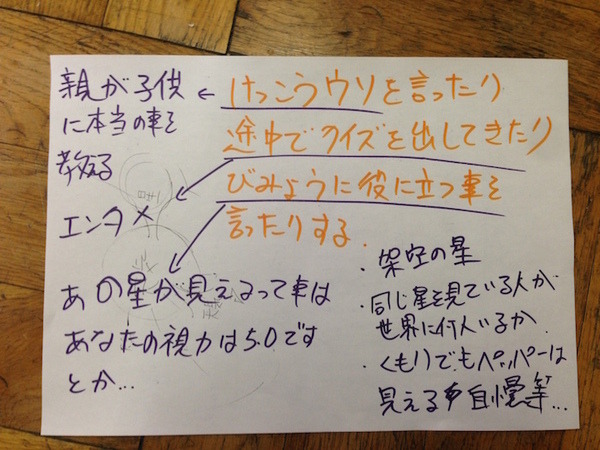 親が子供
に本当の事を
教える
エンタメ
← けっこうウソを言ったり
途中でクイズを出してきたり
びみょうに役に立つ事を
言ったりする
あの星が見えるって事は
あなたの視力は5.0です
とか...
・架空の星
・同じ星を見ている人が
世界に何人いるか
・くもりでもペッパーは
見える自慢等...